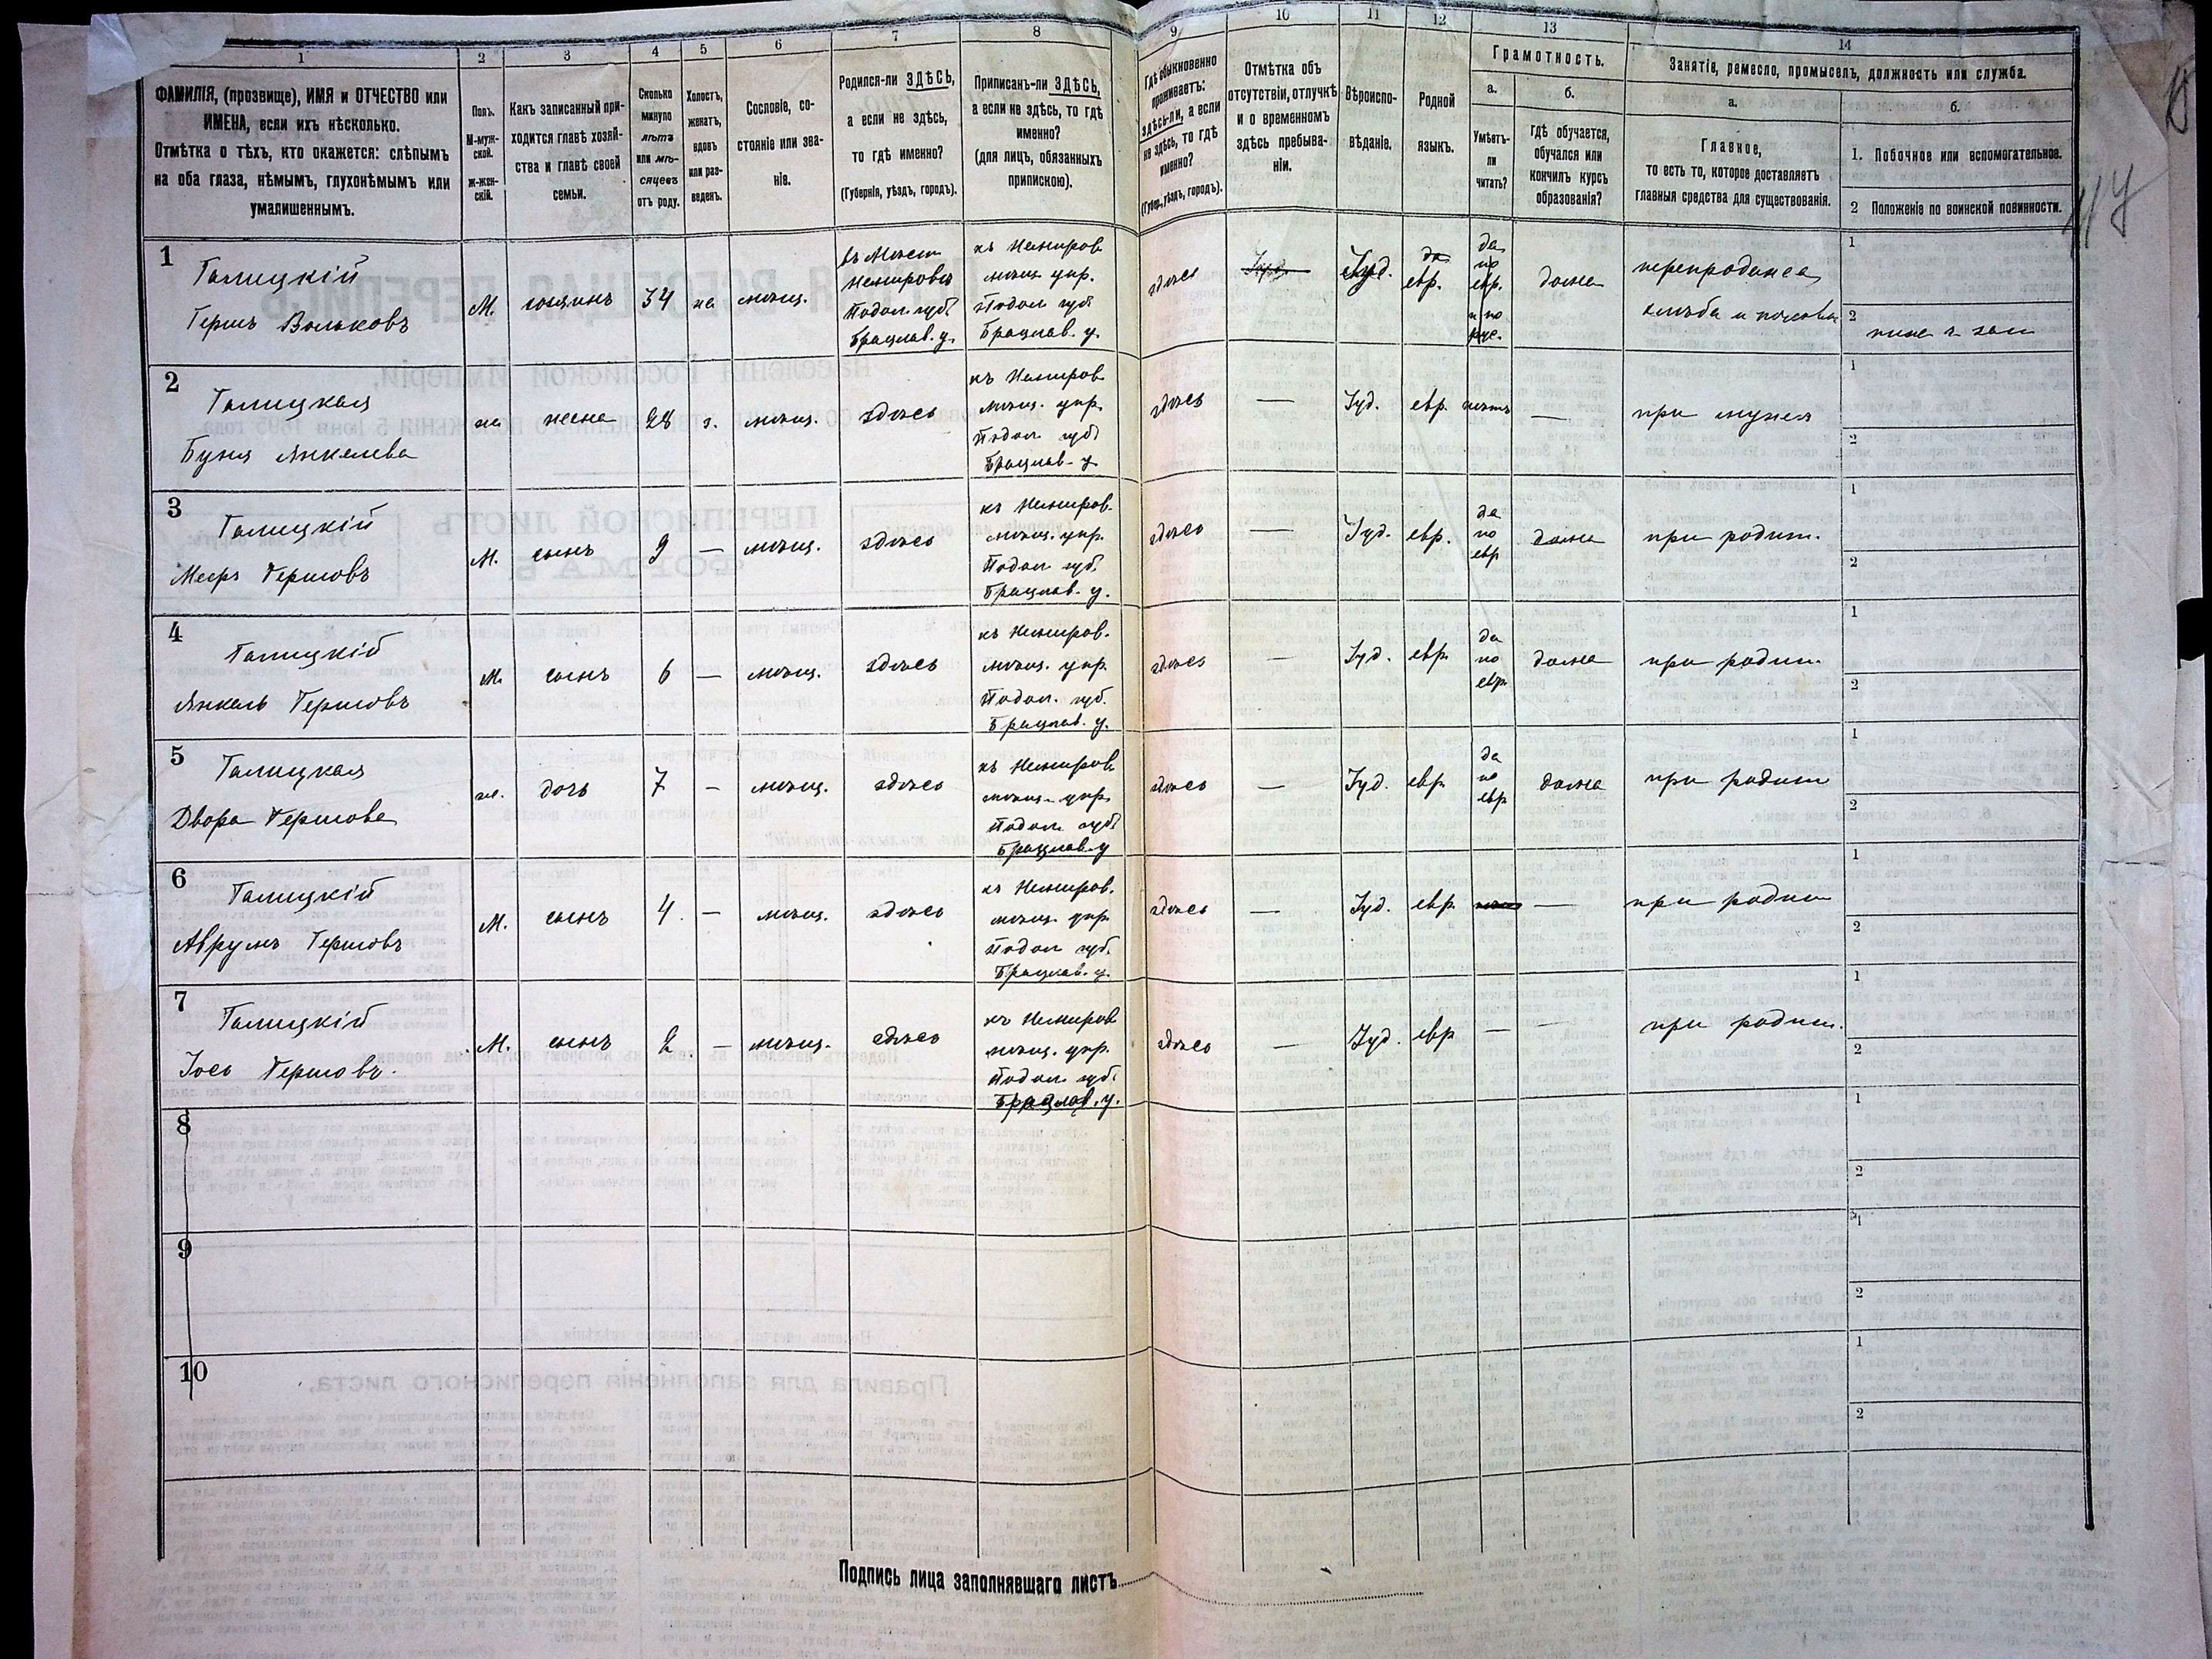 1
2
3
4
5
6
7
8
9
10
11
12
13
14
ФАМИЛІЯ, (прозвище), ИМЯ и ОТЧЕСТВО или
ИМЕНА, если ихъ нѣсколько.
Отмѣтка о тѣхъ, кто окажется: слѣпымъ
на оба глаза, нѣмымъ, глухонѣмымъ или
умалишеннымъ.
Полъ.
М-муж-
ской.
Ж-жен-
скій.
Какъ записанный при-
ходится главѣ хозяй-
ства и главѣ своей
семьи.
Сколько
минуло
лѣтъ
или мѣ-
сяцевъ
отъ роду.
Холостъ,
женатъ,
вдовъ
или раз-
веденъ.
Сословіе, со-
стояніе или зва-
ніе.
Родился-ли ЗДѢСЬ,
а если не здѣсь,
то гдѣ именно?
(Губернія, уѣздъ, городъ).
Приписанъ-ли ЗДѢСЬ,
а если не здѣсь, то гдѣ
именно?
(для лицъ, обязанныхъ
припискою).
Гдѣ обыкновенно
проживаетъ:
здѣсь-ли, а если
не здѣсь, то гдѣ
именно?
(Губер., уѣздъ, городъ).
Отмѣтка объ
отсутствіи, отлучкѣ
и о временномъ
здѣсь пребыва-
ніи.
Вѣроиспо-
вѣданіе.
Родной
языкъ.
Грамотность.
а.
Умѣетъ-
ли
читать?
б.
гдѣ обучается,
обучался или
кончилъ курсъ
образованія?
Занятіе, ремесло, промыселъ, должность или служба.
а.
Главное,
то есть то, которое доставляетъ
главныя средства для существованія.
б.
1. Побочное или вспомогательное.
2 Положеніе по воинской повинности.
1
Галицкій
Гершъ Вольковъ
М.
хозяинъ
34
же
мѣщ.
въ Мѣст
Немировѣ
Подол. губ.
Брацлав. у.
къ Немиров
мѣщ. упр.
Подол губ
Брацлав. у.
здѣсь
Іуд.
евр.
да
по
евр.
и по
рус.
дома
перепродажа
хлѣба
1
2
2
Галицкая
Буня Янкелева
же
жена
28
з.
мѣщ.
здѣсь
къ Немиров
мѣщ. упр.
Подол губ
Брацлав. у
здѣсь
—
Іуд.
евр.
нѣтъ
—
при мужѣ
1
2
3
Галицкій
Мееръ Гершовъ
М.
сынъ
9
—
мѣщ.
здѣсь
къ Немиров.
мѣщ. упр.
Подол губ.
Брацлав. у.
здѣсь
—
Іуд.
евр.
да
по
евр
дома
при родит.
1
2
4
Галицкій
Янкель Гершовъ
М.
сынъ
6
—
мѣщ.
здѣсь
къ Немиров.
мѣщ. упр.
Подол. губ.
Брацлав. у.
здѣсь
—
Іуд.
евр.
да
по
евр.
дома
при родит.
1
2
5
Галицкая
Двора Гершова
же.
дочь
7
—
мѣщ.
здѣсь
къ Немиров
мѣщ. упр.
Подол губ
Брацлав. у
здѣсь
—
Іуд.
евр.
да
по
евр
дома
при родит
1
2
6
Галицкій
Аврумъ Гершовъ
М.
сынъ
4.
—
мѣщ.
здѣсь
къ Немиров.
мѣщ. упр
Подол губ.
Брацлав. у.
здѣсь
—
Іуд.
евр.
—
при родит
1
2
7
Галицкій
Іось Гершовъ.
М.
сынъ
2
—
мѣщ.
здѣсь
къ Немиров
мѣщ. упр.
Подол губ.
Брацлав. у.
здѣсь
—
Іуд.
евр
—
—
при родит.
1
2
8
1
2
9
1
2
10
1
2
Подпись лица заполнявшаго листъ